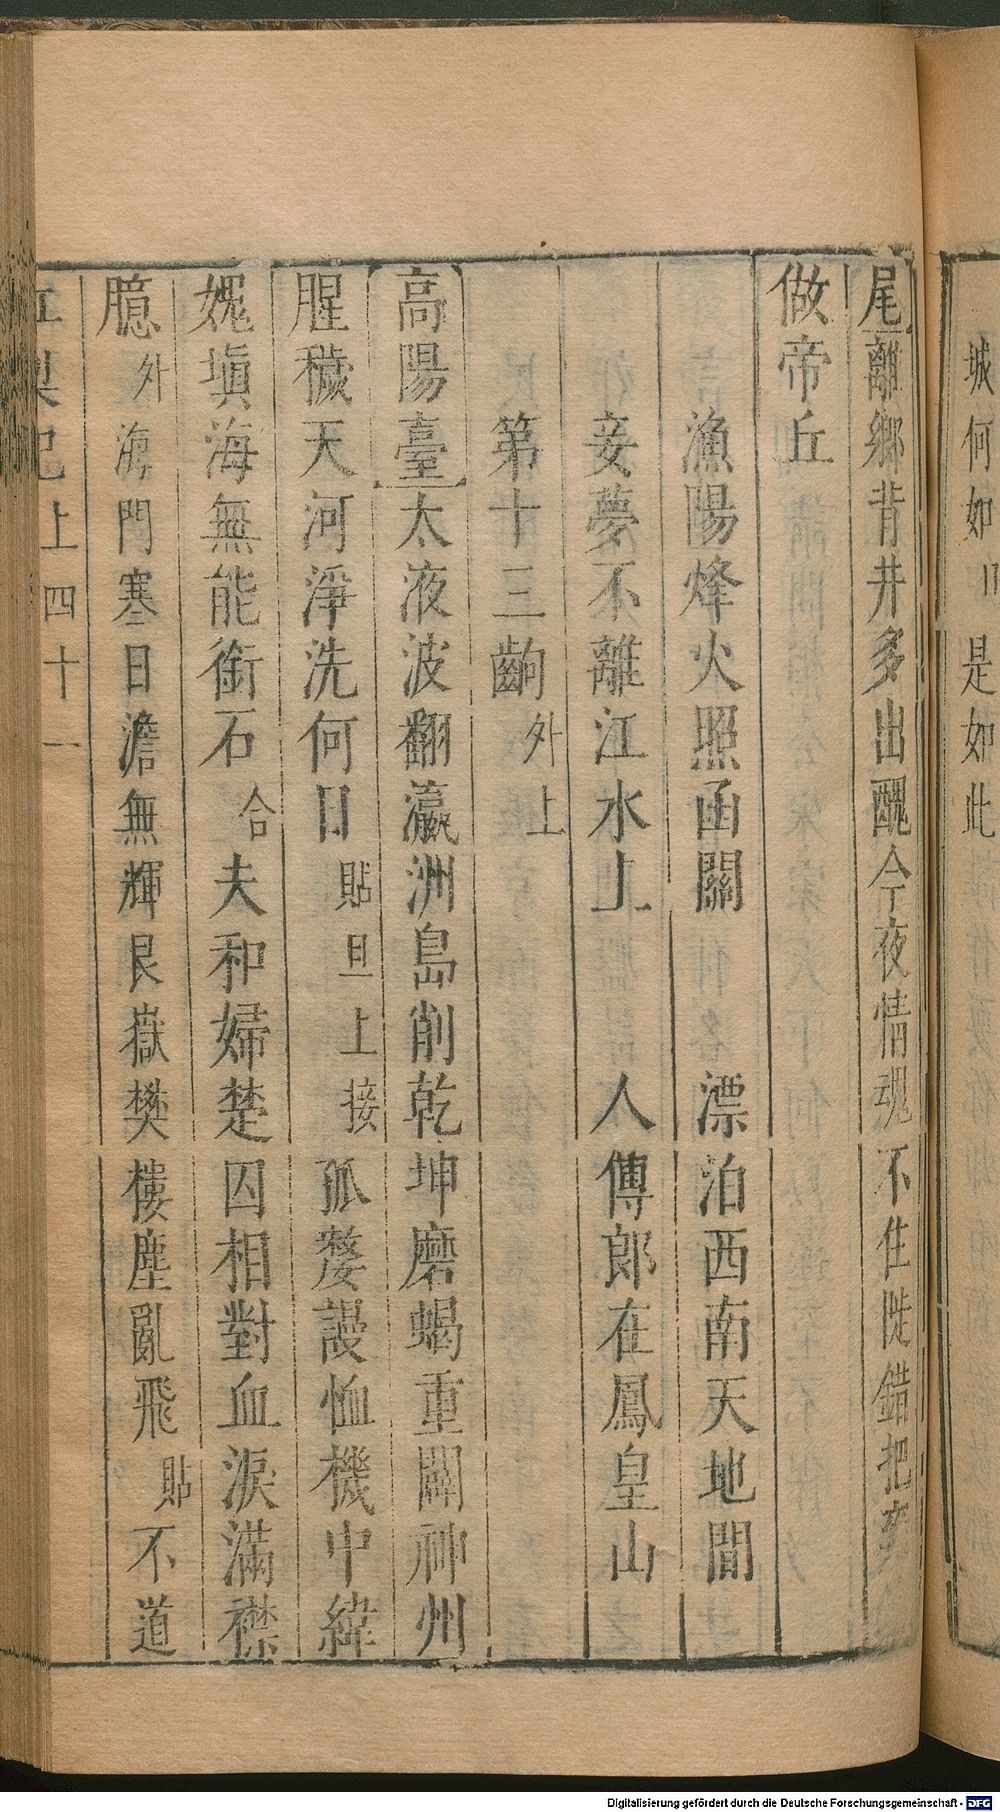 城何如　是如此
尾離鄉背井多出醜今夜情魂不住徙錯把
做帝丘
漁陽烽火照函關　漂泊西南天地間
妾夢不離江水上　人傳郎在鳳皇山
第十三齣外上
高陽臺太液波翻瀛洲島削乾坤磨蝎重闢神州
腥穢天河淨洗何日貼旦上接孤嫠謾恤機中緯
媿塡海無能銜石合夫和婦楚囚相對血淚滿襟
臆外海門寒日澹無輝艮嶽樊樓塵亂飛貼不道
紅梨記上四十一
Digitalisierung gefördert durch die Deutsche Forschungsgemeinschaft - DFG